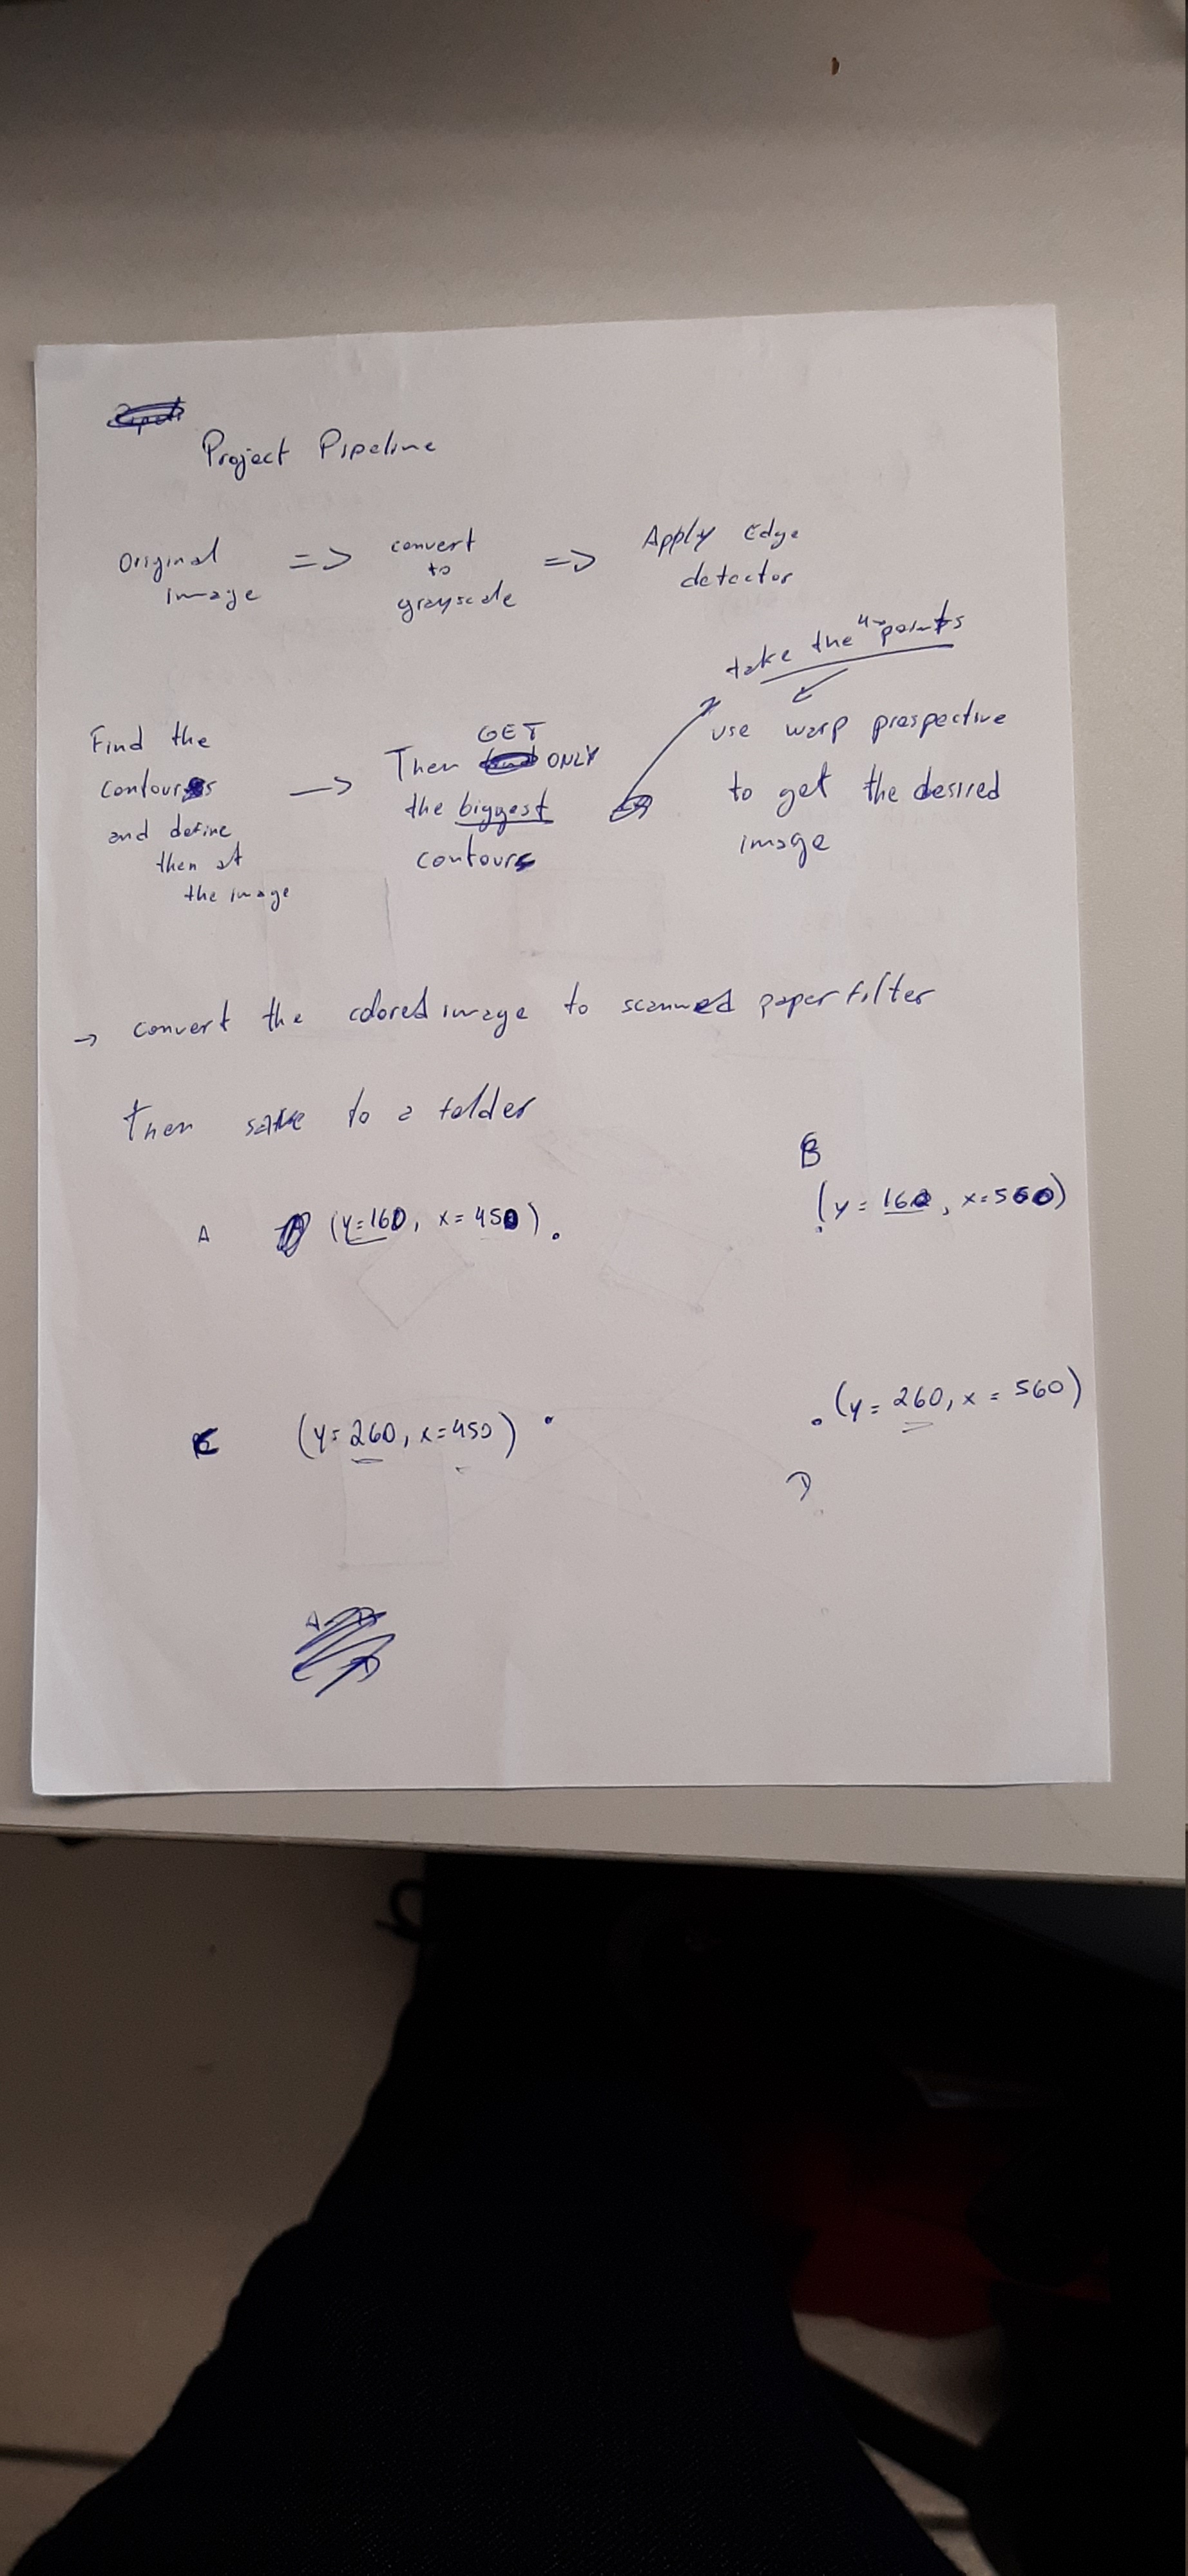 Project Pipeline
Original image => convert to grayscale => Apply Edge detector
take the 4 points
Find the contours and define then at the image -> Then GET ONLY the biggest contours
use warp prospective to get the desired image
-> convert the colored image to scanned paper filter
then save to a folder
A (y=160, x=450)
B (y=160, x=560)
C (y=260, x=450)
D (y=260, x=560)